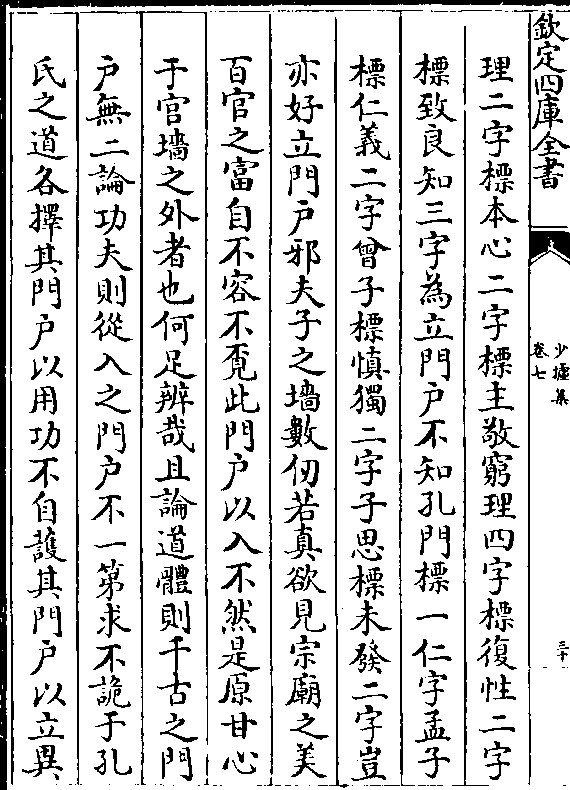 欽定四庫全書
少墟集
卷七
三十
理二字標本心二字標主敬窮理四字標復性二字
標致良知三字為立門户不知孔門標一仁字孟子
標仁義二字曾子標慎獨二字子思標未發二字豈
亦好立門户邪夫子之墻數仞若真欲見宗廟之美
百官之富自不容不覔此門户以入不然是原甘心
于宫墻之外者也何足辨哉且論道體則千古之門
户無二論功夫則從入之門户不一第求不詭于孔
氏之道各擇其門户以用功不自護其門户以立異